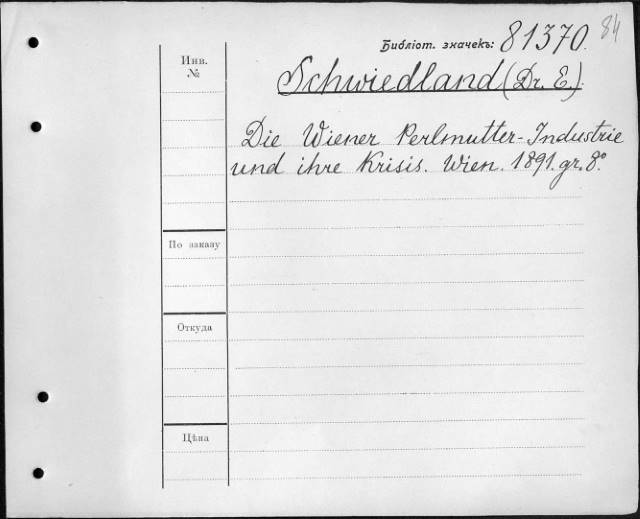 Библіот. значекъ: 81370. 84
Инв.
№
Schwiedland (Dr. E.).
Die Wiener Perlmutter-Industrie
und ihre Krisis. Wien. 1891. gr. 8°
По заказу
Откуда
Цѣна